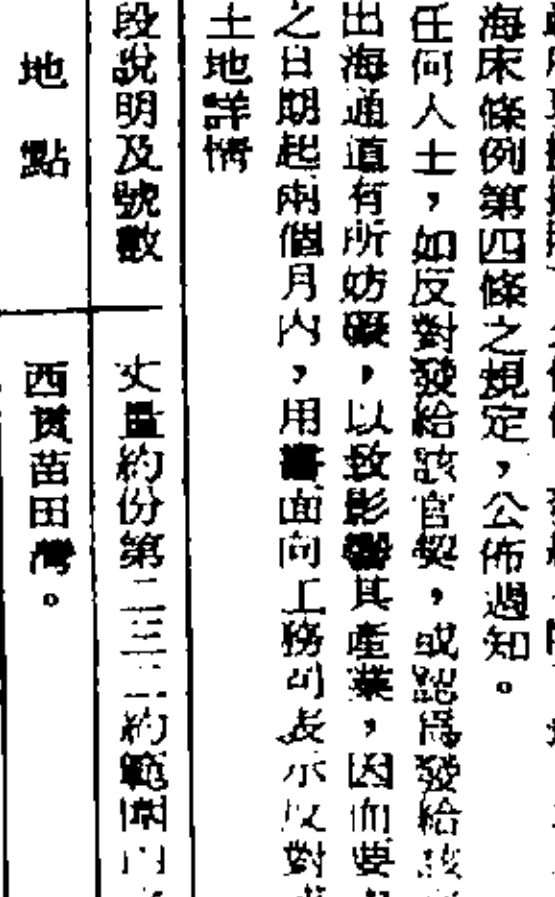 海床條例第四條之規定，公佈週知。
任何人士，如反對發給該官契，或認爲發給該
出海通道有所妨礙，以致影響其產業，因而要
之日期起兩個月內，用書面向工務司表示反對
土地詳情
段說明及號數
丈量約份第二三二約範圍內
地點
西貢苗田灣。